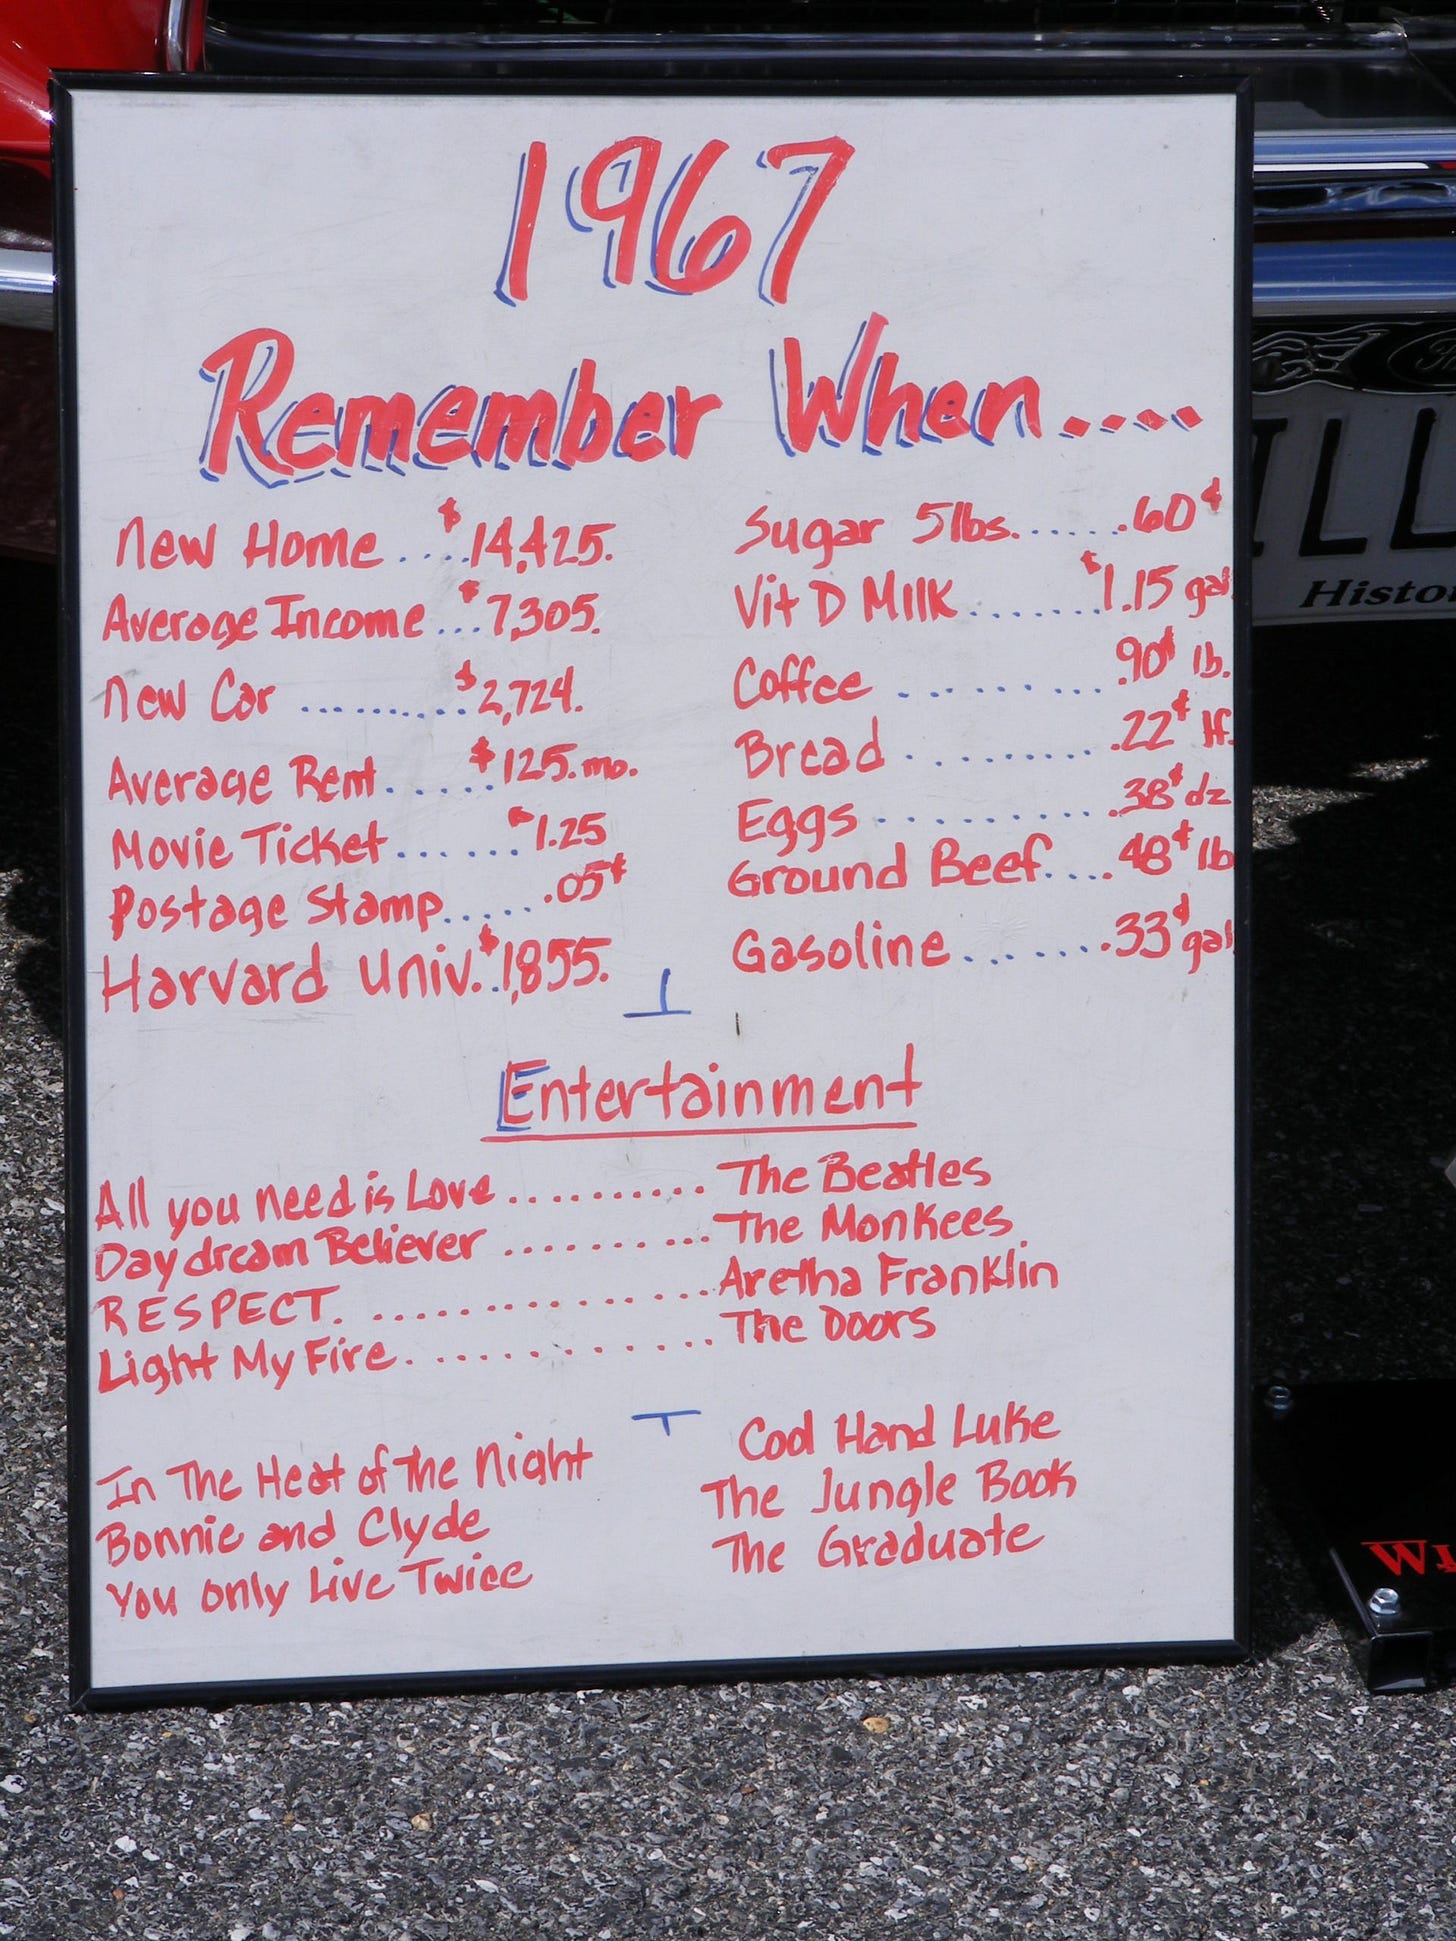 1967
Remember When....
New Home ....$14,425.
Average Income ...$7,305.
New Car ..........$2,724.
Average Rent......$125.mo.
Movie Ticket.......$1.25
Postage Stamp......05¢
Harvard Univ..$1,855.
Sugar 5lbs........60¢
Vit D Milk .......$1.15 gal.
Coffee ..........90¢ lb.
Bread ..........22¢ lf.
Eggs ...........38¢ dz
Ground Beef.....48¢ lb
Gasoline ........33¢ gal
Entertainment
All you need is Love .......... The Beatles
Daydream Believer .......... The Monkees
RESPECT. .............. Aretha Franklin
Light My Fire............. The Doors
In The Heat of The Night
Bonnie and Clyde
You Only Live Twice
Cool Hand Luke
The Jungle Book
The Graduate